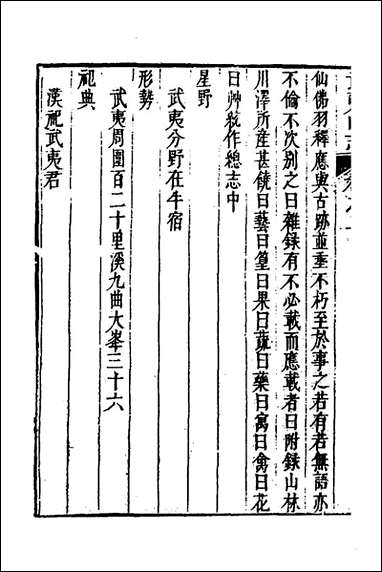 仙佛羽釋應與古跡並垂不朽至於事之若有若無語亦
不倫不次別之曰雜録有不必載而應載者曰附録山林
川澤所産甚饒曰藝曰篁曰果曰蔬曰藥曰禽曰花
曰艸紘作總志中
星野
武夷分野在牛宿
形勢
武夷周圍百二十里溪九曲大峯三十六
祀典
漢祀武夷君